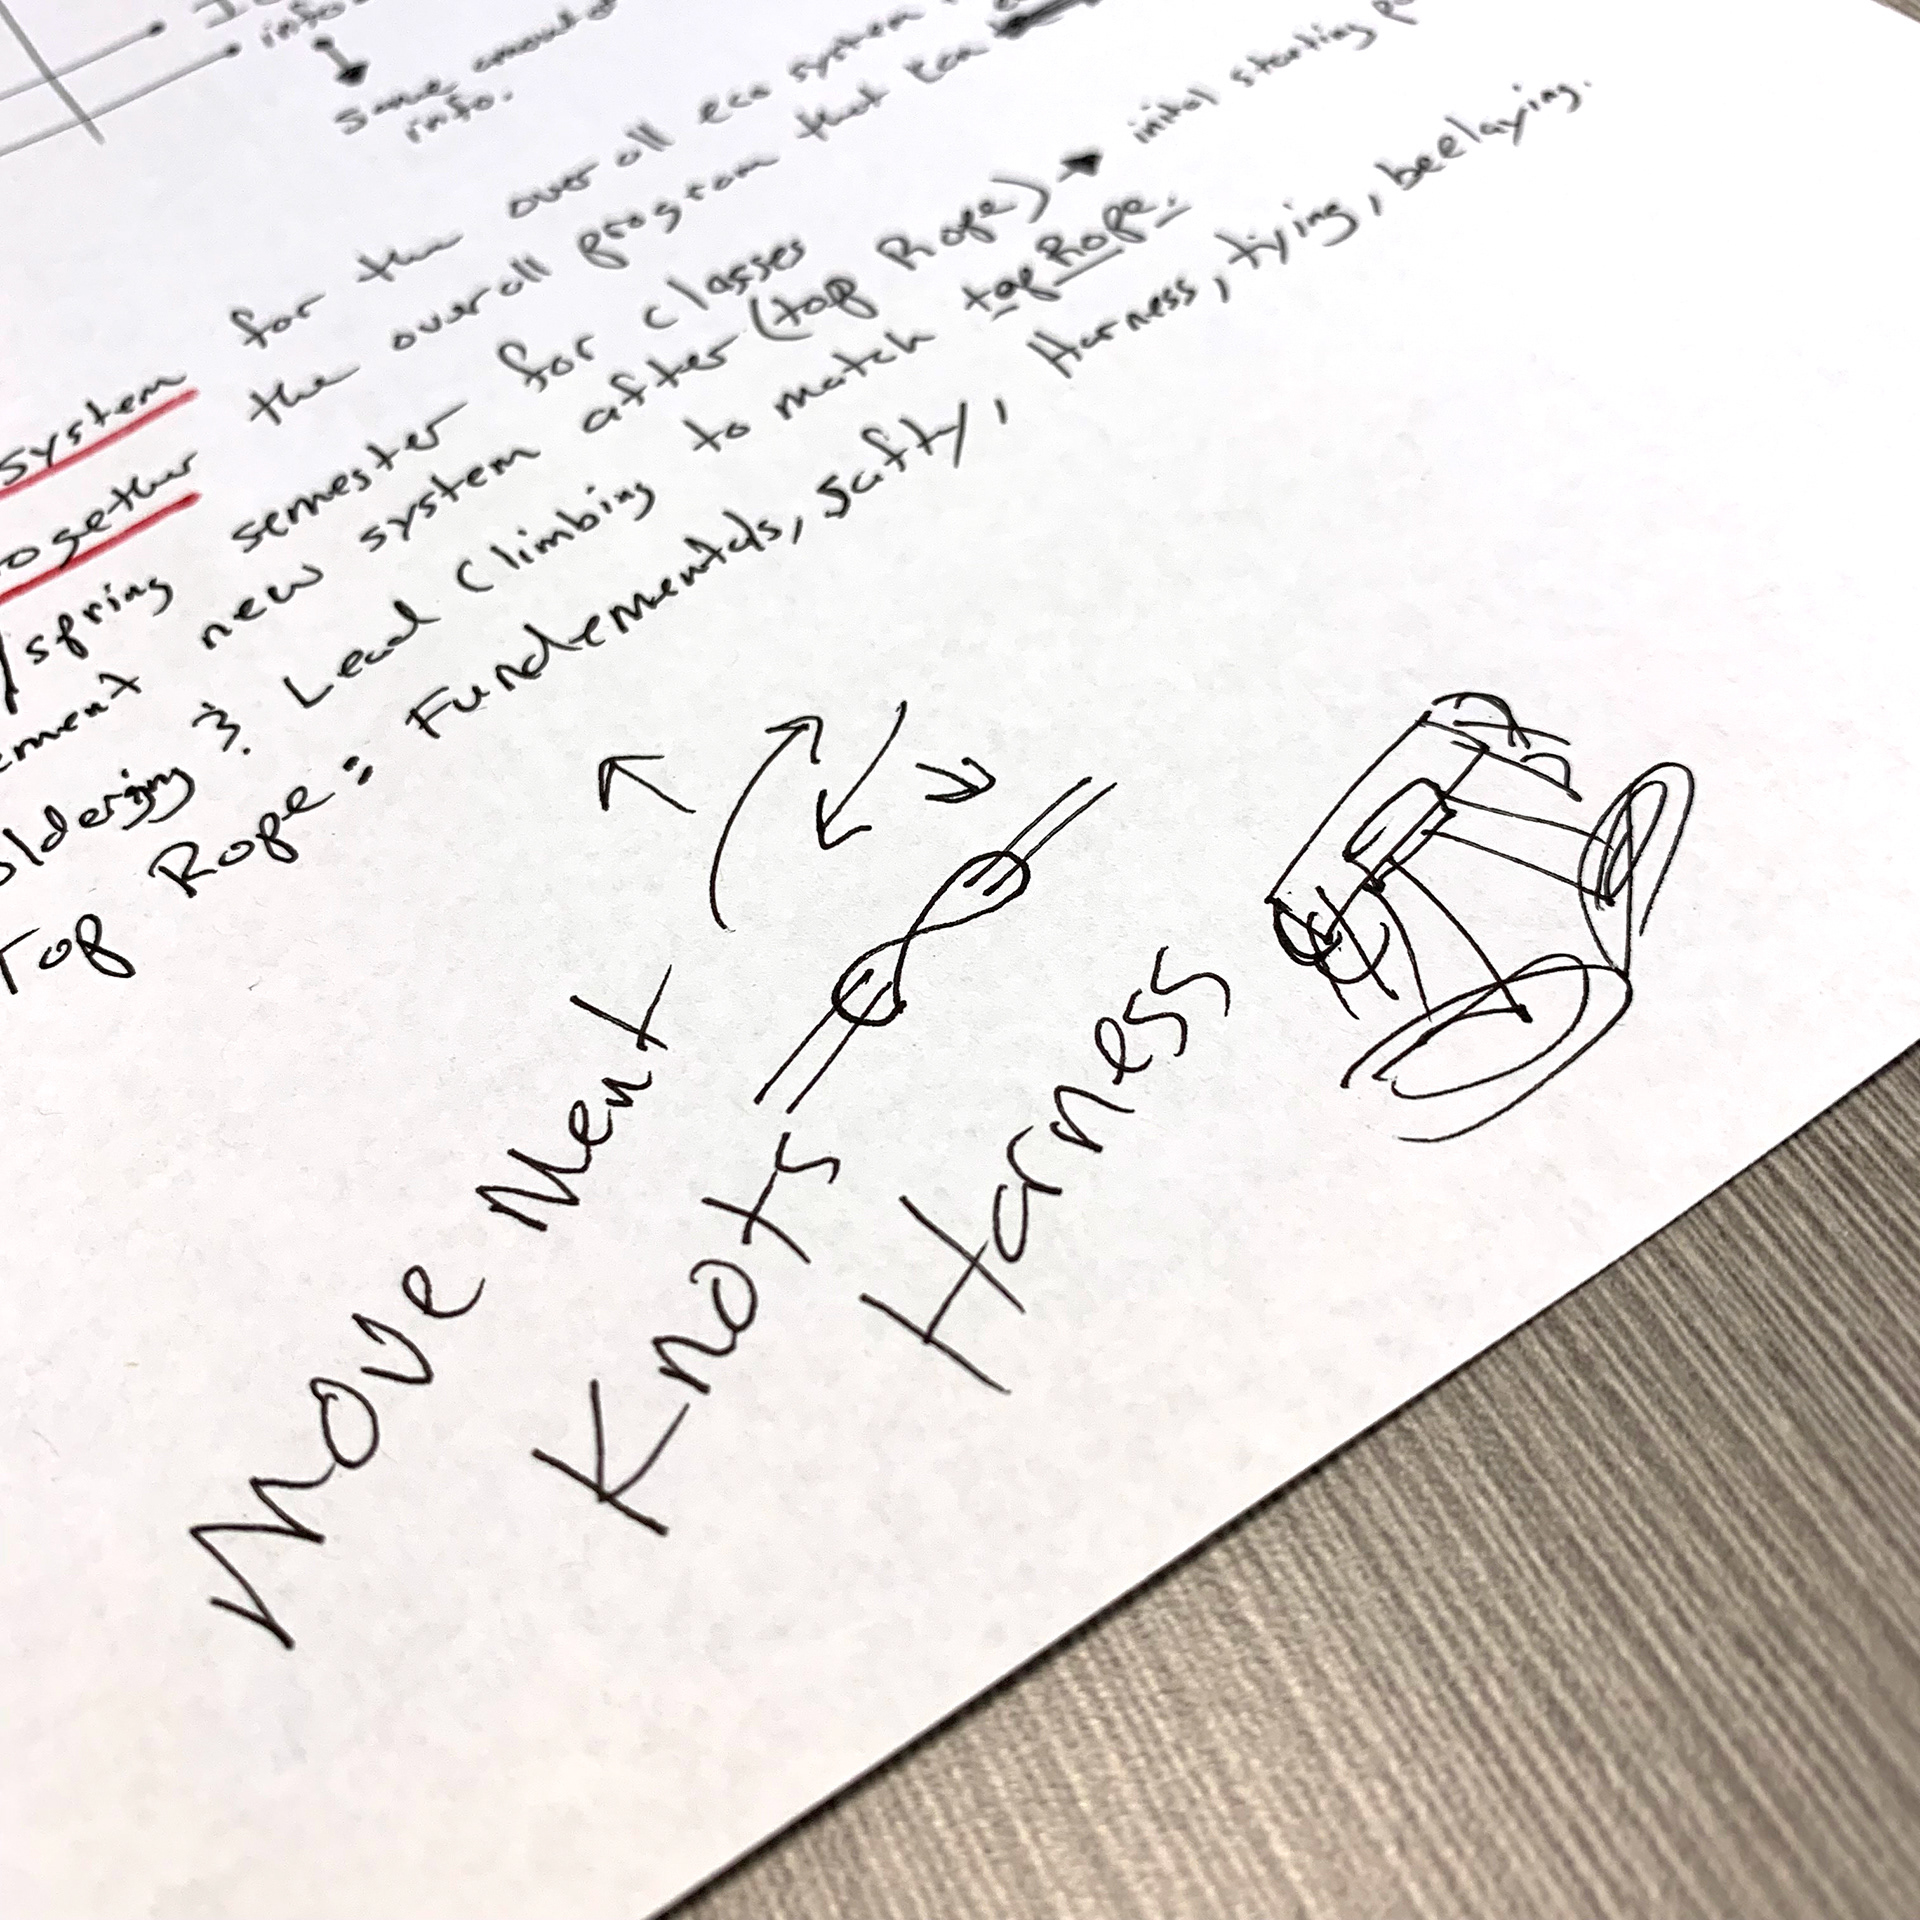 info.
Same amount of
info.
system for the over all eco system
together the overall program that can
/spring semester for classes
new system after (top Rope) → inital starting
oldering & Lead Climbing to match top Rope.
Top Rope: Fundementals, Safty, Harness, tying, beelaying.
MoveMent
Knots
Harness